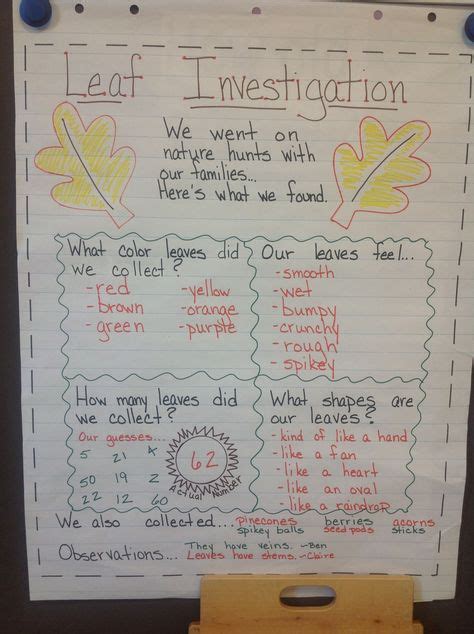 Leaf Investigation
We went on
nature hunts with
our families...
Here's what we found.
What color leaves did
we collect?
-red
-brown
-green
-yellow
-orange
-purple
Our leaves feel...
-smooth
-wet
-bumpy
-crunchy
-rough
-spikey
How many leaves did
we collect?
Our guesses...
5 21 4
50 19 2
22 12 60
62
Actual Number
What shapes are
our leaves?
-kind of like a hand
-like a fan
-like a heart
-like an oval
-like a raindrop
We also collected... pinecones berries acorns
spikey balls seed pods sticks
Observations... They have veins. -Ben
Leaves have stems. -Claire